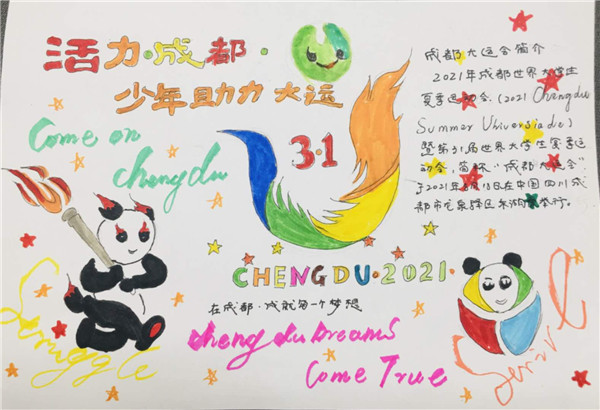 活力·成都·
少年助力大运
Come on
Chengdu
3·1
成都大运会简介
2021年成都世界大学生
夏季运动会.(2021 Chengdu
Summer Universiade)
暨第31届世界大学生夏季运
动会,简称"成都大运会".
于2021年8月18日在中国四川成
都市龙泉驿区东举行.
CHENGDU·2021.
在成都·成就一个梦想
Cheng du Dreams
Come True
Struggle